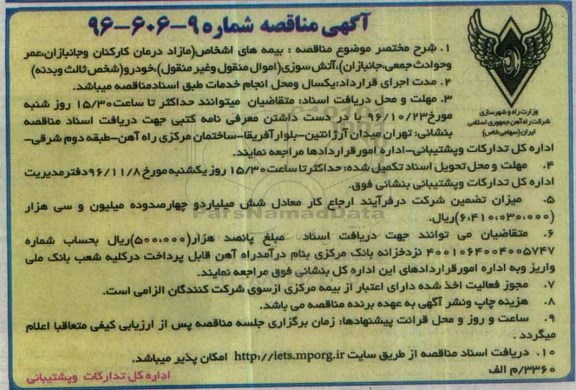 آگهی مناقصه شماره ۹-۶۰۶-۹۶
وزارت راه و شهرسازی
شرکت راه آهن جمهوری اسلامی
ایران (سهامی خاص)
۱. شرح مختصر موضوع مناقصه : بیمه های اشخاص (مازاد درمان کارکنان وجانبازان،عمر
وحوادث جمعی،جانبازان)،آتش سوزی(اموال منقول وغیر منقول)،خودرو(شخص ثالث وبدنه)
۲. مدت اجرای قرارداد:یکسال ومحل انجام خدمات طبق اسنادمناقصه میباشد.
۳. مهلت و محل دریافت اسناد: متقاضیان میتوانند حداکثر تا ساعت ۱۵/۳۰ روز شنبه
مورخ ۹۶/۱۰/۲۳ با در دست داشتن معرفی نامه کتبی جهت دریافت اسناد مناقصه
بنشانی: تهران میدان آرژانتین-بلوارآفریقا-ساختمان مرکزی راه آهن-طبقه دوم شرقی-
اداره کل تدارکات وپشتیبانی-اداره امورقراردادها مراجعه نمایند.
۴. مهلت و محل تحویل اسناد تکمیل شده: حداکثر تا ساعت ۱۵/۳۰ روز یکشنبه مورخ ۹۶/۱۱/۸ دفتر مدیریت
اداره کل تدارکات وپشتیبانی بنشانی فوق.
۵. میزان تضمین شرکت درفرآیند ارجاع کار معادل شش میلیاردو چهارصدوده میلیون و سی هزار
(۶،۴۱۰،۰۳۰،۰۰۰)ریال.
۶. متقاضیان می توانند جهت دریافت اسناد مبلغ پانصد هزار(۵۰۰،۰۰۰)ریال بحساب شماره
۴۰۰۱۰۶۴۰۰۴۰۰۵۷۴۷ نزدخزانه بانک مرکزی بنام درآمدراه آهن قابل پرداخت درکلیه شعب بانک ملی
واریز وبه اداره امورقراردادهای این اداره کل بنشانی فوق مراجعه نمایند.
۷. مجوز فعالیت اخذ شده دارای اعتبار از بیمه مرکزی ازسوی شرکت کنندگان الزامی است.
۸. هزینه چاپ ونشر آگهی به عهده برنده مناقصه می باشد.
۹. ساعت و روز و محل قرائت پیشنهادها: زمان برگزاری جلسه مناقصه پس از ارزیابی کیفی متعاقبا اعلام
میگردد .
۱۰. دریافت اسناد مناقصه از طریق سایت http://iets.mporg.ir امکان پذیر میباشد.
۳۳۶۰/م الف
اداره کل تدارکات وپشتیبانی
ParsNamadData